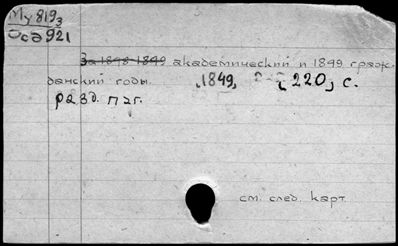 Му 819з
Оса 921
За 1848-1849 академический и 1849 граж
данский годы. , 1849, 220, с.
разд. паг.
см. след. карт.